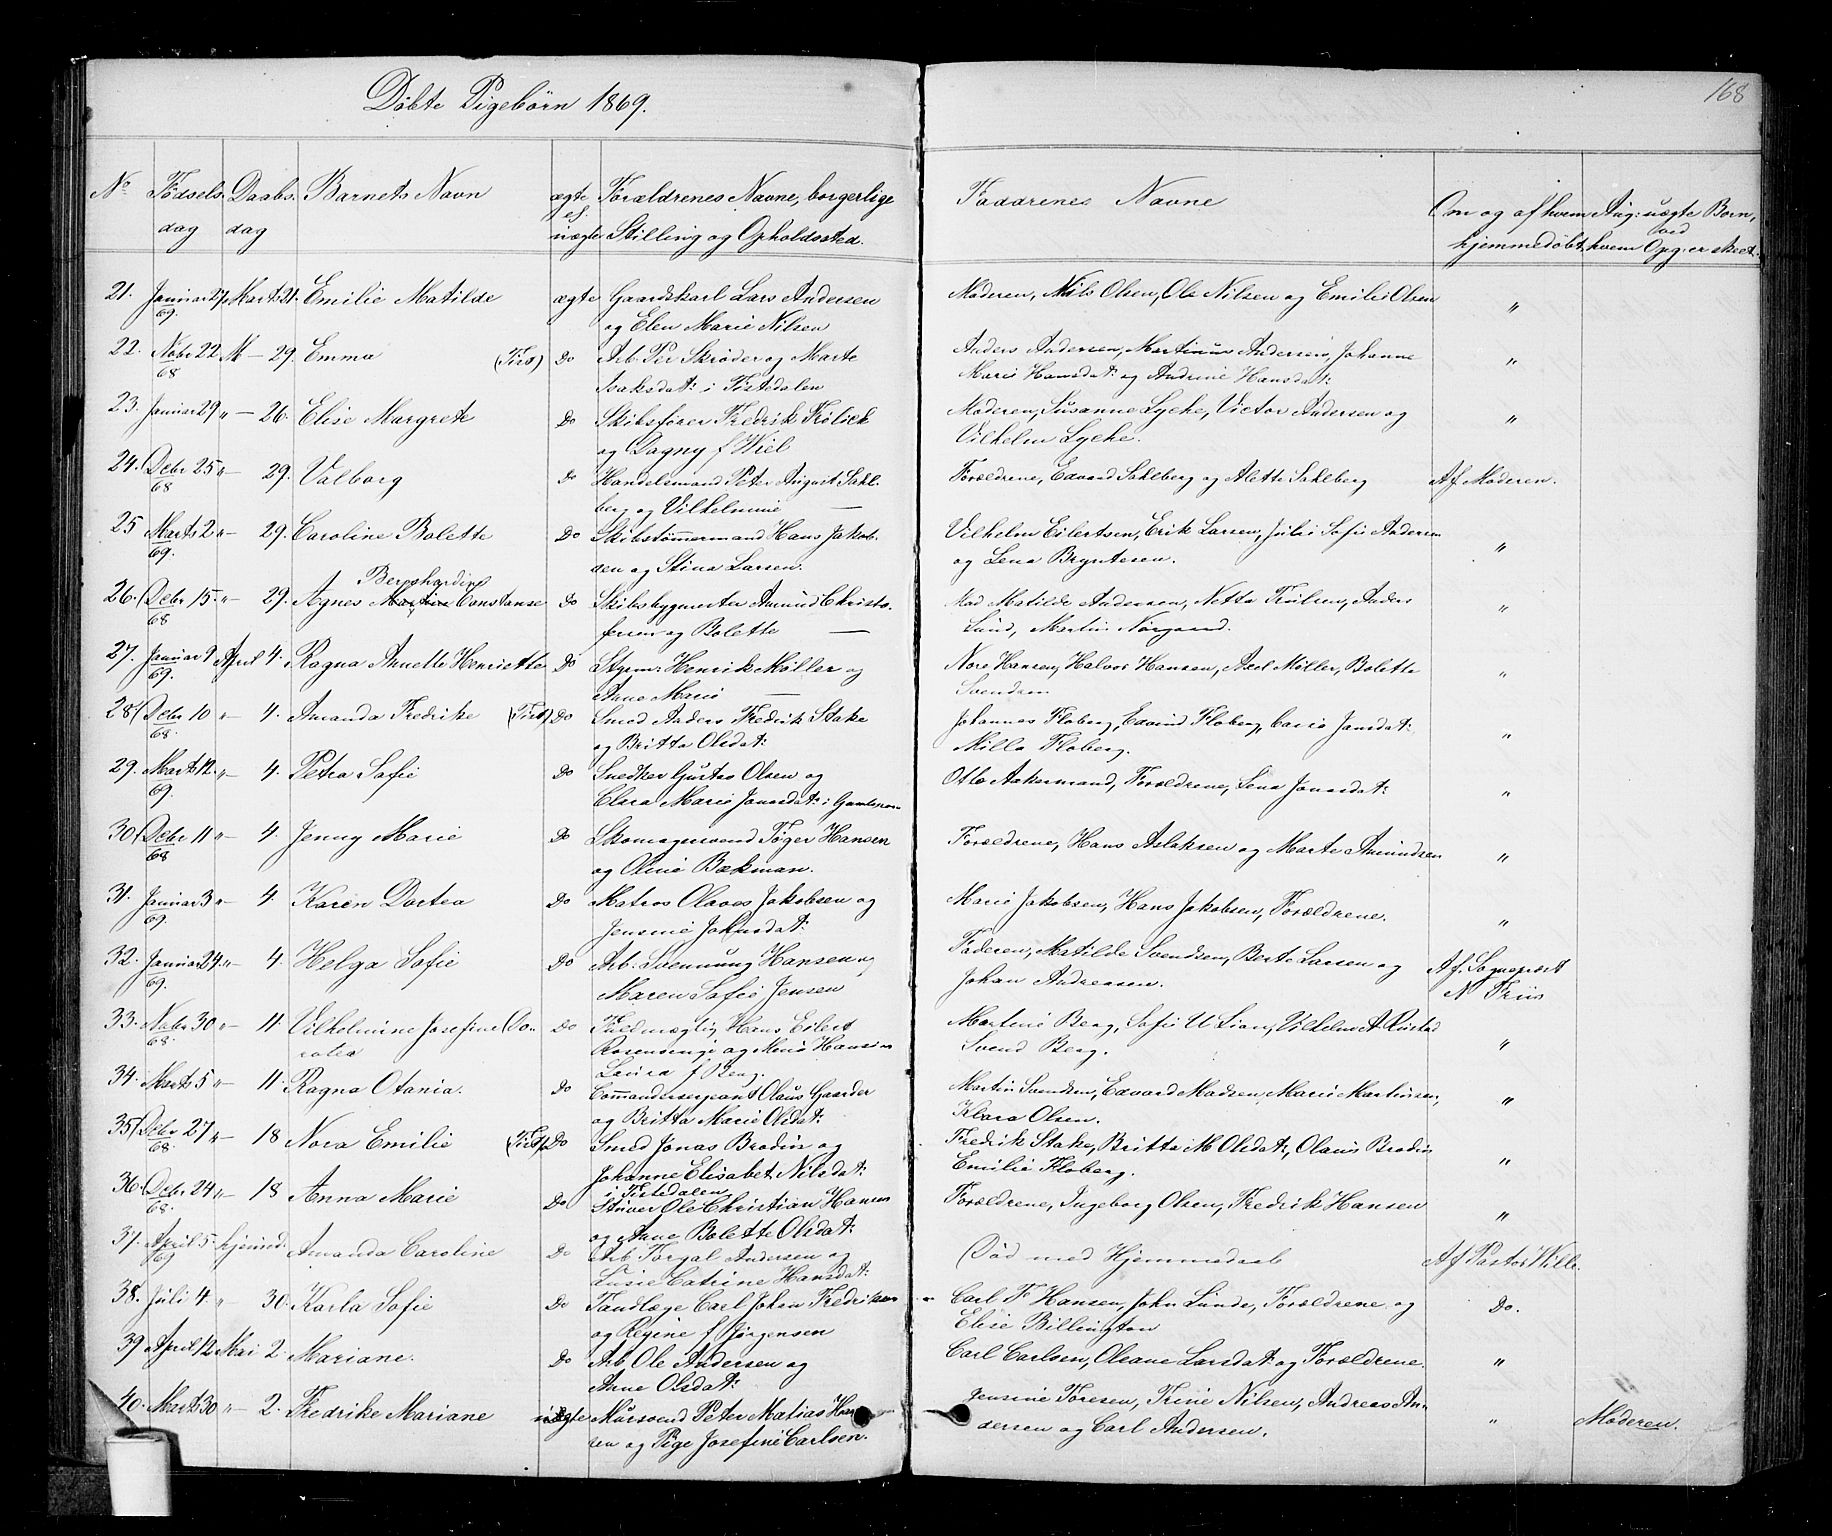 Døbte Pigebörn 1869.
168
No Fødsels Daabs Barnets Navn ægte Forældrenes Navne, borgerlige Faddrenes Navne Om og af hvem Ang: uægte Børn,
dag dag el. uægte Stilling og Opholdssted. hjemmedøbt hvem Opg: er skeet
21. Januar 27 Marts 21. Emilie Matilde ægte Gaardskarl Lars Andersen Moderen, Nils Olsen, Ole Nilsen og Emilie Olsen "
69. og Elen Marie Nilsen
22. Nobr 22 M — 29. Emma (Tist) Do Arb. Per Skrøder og Marte Anders Andersen, Martinus Andersen, Johanne "
68 Isaksdat: i Tistedalen Marie Hansdat: og Andrine Hansdat:
23. Januar 29 " — 26. Elise Margrete Do Skibsfører Fredrik Frölich Moderen, Susanne Lyche, Victor Andersen og "
og Dagny f Wiel Vilhelm Lyche.
24. Debr 25 " — 29. Valborg Do Handelsmand Peter August Sahl- Forældrene, Edvard Sahlberg og Alette Sahlberg Af Moderen.
68 berg og Vilhelmine —
25 Marts 2 " — 29. Caroline Bolette Do Skibstømmermand Hans Jakob- Vilhelm Eilertsen, Erik Larsen, Julie Sofie Andersen "
69. sen og Stina Larsen. og Lena Bryntesen.
Bernhardine
26. Debr 15. " — 29. Agnes Martine Constanse Do Skibsbygmester Amund Christo- Mad Matilde Andersen, Netta Trulsen, Anders "
68 fersen og Bolette — Lund, Martin Norgaard.
27. Januar 9 April 4. Ragna Anette Henriette Do Styrm: Henrik Møller og Nore Hansen, Halvor Hansen, Axel Møller, Bolette "
69. Anne Marie — Svendsen
28 Debr 10 " — 4. Amanda Fredrike (Tist) Do Smed Anders Fredrik Stake Johannes Floberg, Edvind Floberg, Carie Jansdat: "
68. og Britta Olsdat: Milla Floberg.
29. Marts 12. " — 4. Petra Sofie Do Snedker Gustav Olsen og Otto Aakermand, Forældrene, Lena Jonasdat: "
69. Clara Marie Jonasdat: i
30 Debr 11 " — 4. Jenny Marie Do Skomagersvend Töger Hansen Forældrene, Hans Aslaksen og Marte Amundsen "
68 og Oline Bækman.
31. Januar 3 " — 4. Karen Dortea Do Matros Olaves Jakobsen og Marie Jakobsen, Hans Jakobsen, Forældrene. "
69. Jensine Johnsdat:
32. Januar 24. " — 4. Helga Sofie Do Arb. Svennung Hansen og Faderen, Matilde Svendsen, Berte Larsen og Af. Sogneprest
69. Maren Sofie Jensen Johan Andreasen. N Friis
33. Nobr 30 " — 11. Vilhelmine Josefine Do- Do Fuldmægtig Hans Eilert Martine Berg, Sofie U Lian, Vilhelm A. Rustad "
68. rotea Rosensvinge og Marie Hansine Svend Berg.
Laura f Berg.
34. Marts 5 " — 11. Ragna Otania. Do Commandersergeant Olaus Gaarder Martin Svendsen, Edvard Madsen, Marie Martinsen, "
og Britta Marie Olsdat: Klara Olsen.
35 Debr 27 " — 18 Nora Emilie (Tist) Do Smed Jonas Brodin og Fredrik Stake, Britta M Olsdat:, Olaus Brodin "
68. Johanne Elisabet Nilsdat: Emilie Floberg.
i Tistedalen
36. Debr 24 " — 18 Anna Marie Do Stuver Ole Christian Hansen Forældrene, Ingeborg Olsen, Fredrik Hansen "
68. og Anne Bolette Olsdat:
37. April 5. hjemmed. Amanda Caroline Do Arb Torgal Andersen og (Död med Hjemmedaab Af Pastor Wille.
69 Lusie Catrine Hansdat:
38. Juli 4. " 30. Karla Sofie Do Tandlæge Carl Johan Fredriksen Carl F Hansen, John Lunde, Forældrene og Do.
og Regine f Jørgensen Elise Billington
39 April 12. Mai 2. Mariane. Do Arb Ole Andersen og Carl Carlsen, Oleane Larsdat: og Forældrene. "
Anne Olsdat:
40. Marts 30 " — 2. Fredrike Mariane uægte Mursvend Peter Matias Han- Jensine Toresen, Trine Nilsen, Andreas An- " Moderen.
sen og Pige Josefine Carlsen. dersen og Carl Andersen.